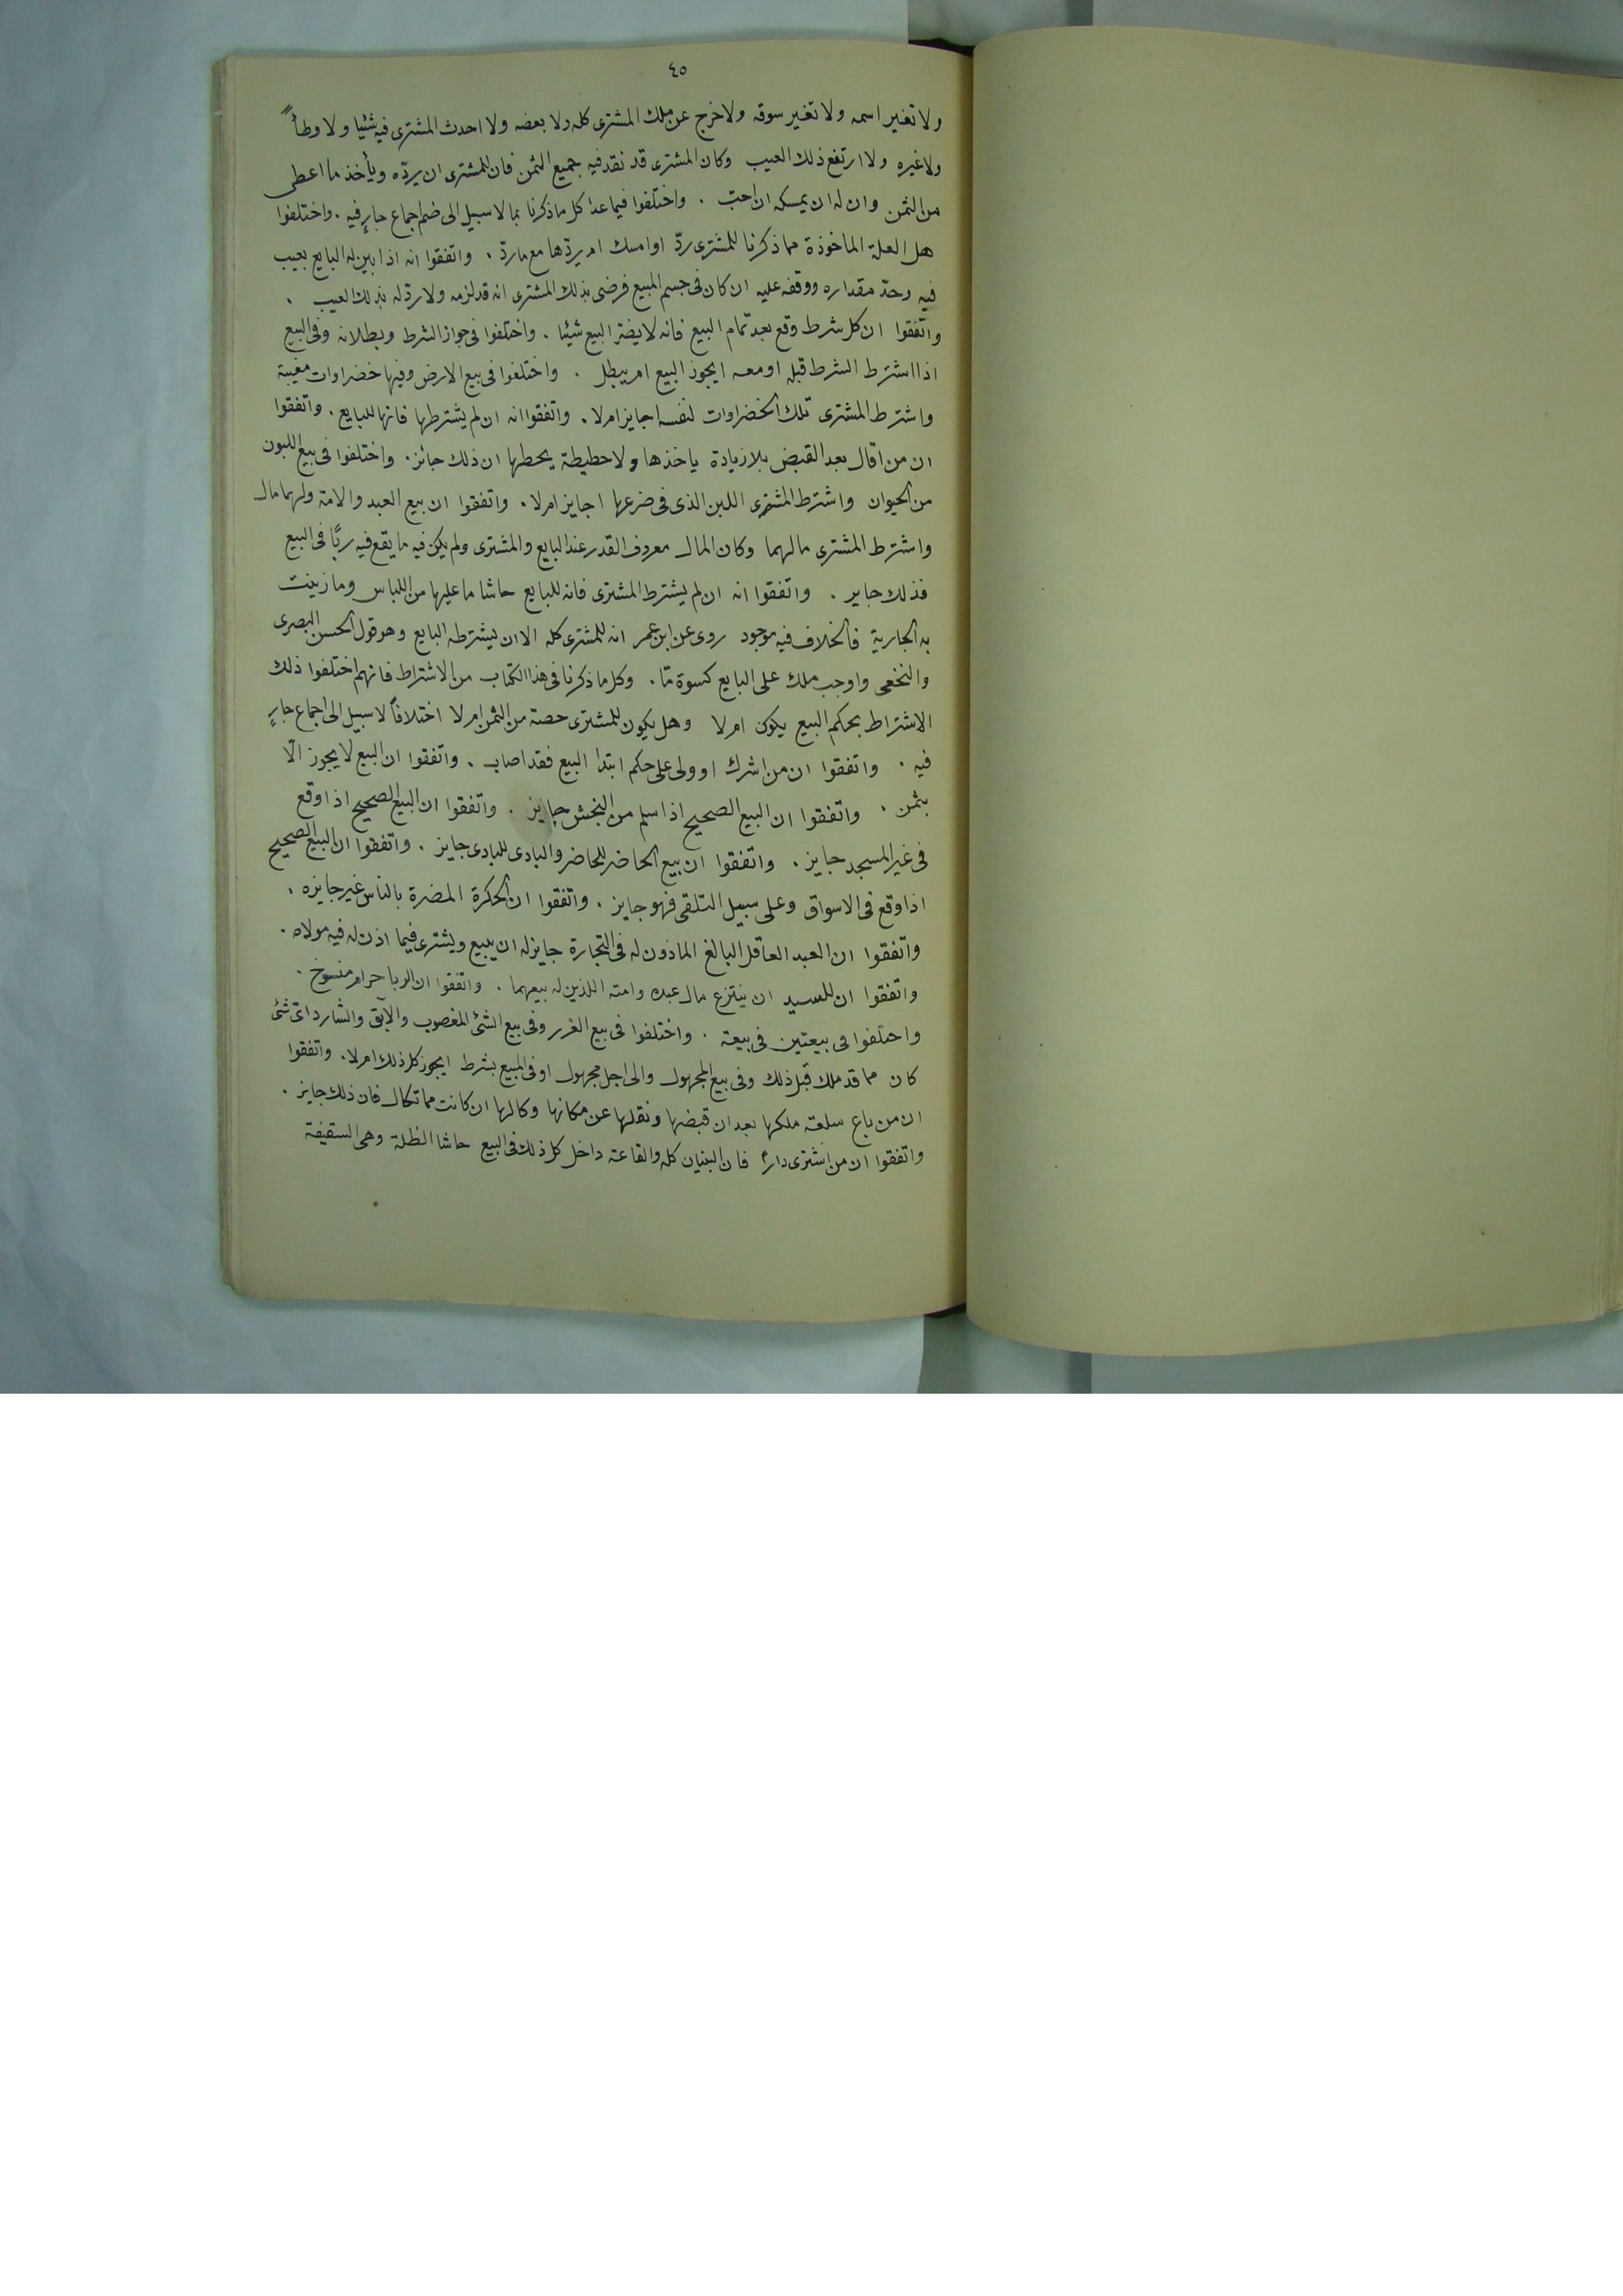 ٤٥
ولا تغير اسمه ولا تغير سوقه ولا خرج عن ملك المشترى كله ولا بعضه ولا احدث المشترى فيه شئيا ولا وطأً
ولا غيره ولا ارتفع ذلك العيب وكان المشترى قد نقد فيه جميع الثمن فان للمشترى ان يردّه ويأخذ ما اعطى
من الثمن وان له ان يمسكه ان احبّ . واختلفوا فيما عدا كل ما ذكرنا بما لا سبيل الى ضم اجماع جارٍ فيه . واختلفوا
هل العلة الماخوذة مما ذكرنا للمشترى ردّ او امسك ام يردّها مع ما ردّ . واتفقوا انه اذا بين له البايع بعيب
فيه وحدّ مقداره ووقفه عليه ان كان فى جسم المبيع فرضى بذلك المشترى انه قد لزمه ولا ردّ له بذلك العيب .
واتفقوا ان كل شرط وقع بعد تمام البيع فانه لا يضرّ البيع شيئا . واختلفوا فى جواز الشرط وبطلانه وفى البيع
اذا اشترط الشرط قبله او معه ايجوز البيع ام يبطل . واختلفوا فى بيع الارض وفيها خضراوات مغيبة
واشترط المشترى تلك الخضراوات لنفسه اجايز ام لا . واتفقوا انه ان لم يشترطها فانها للبايع . واتفقوا
ان من اقال بعد القبض بلا زيادة ياخذها ولا حطيطة يحطها ان ذلك جائز . واختلفوا فى بيع اللبون
من الحيوان واشترط المشترى اللبن الذى فى ضرعها اجايز ام لا . واتفقوا ان بيع العبد والامة ولهما مال
واشترط المشترى مالهما وكان المال معروف القدر عند البايع والمشترى ولم يكن فيه ما يقع فيه ربًا فى البيع
فذلك جاير . واتفقوا انه ان لم يشترط المشترى فانه للبايع حاشا ما عليها من اللباس وما زينت
به الجارية فالخلاف فيه موجود روى عن ابن عمر انه للمشترى كله الا ان يشترطه البايع وهو قول الحسن البصرى
والنخعى واوجب ملك على البايع كسوة مّا . وكل ما ذكرنا فى هذا الكتاب من الاشتراط فانهم اختلفوا ذلك
الاشتراط بحكم البيع يكون ام لا وهل يكون للمشترى حصة من الثمن ام لا اختلافاً لا سبيل الى اجماع جارٍ
فيه . واتفقوا ان من اشرك او ولى على حكم ابتدا البيع فقد اصاب . واتفقوا ان البيع لا يجوز الّا
بثمن . واتفقوا ان البيع الصحيح اذا سلم من النجش جايز . واتفقوا ان البيع الصحيح اذا وقع
فى غير المسجد جايز . واتفقوا ان بيع الحاضر للحاضر والبادى للبادى جايز . واتفقوا ان البيع الصحيح
اذا وقع فى الاسواق وعلى سبيل التلقى فهو جايز . واتفقوا ان الحكرة المضرة بالناس غير جايزه .
واتفقوا ان العبد العاقل البالغ الماذون له فى التجارة جايز له ان يبيع ويشترى فيما اذن له فيه مولاه .
واتفقوا ان للسيد ان ينتزع مال عبده وامته اللذين له بيعهما . واتفقوا ان الربا حرام منسوخ .
واختلفوا فى بيعتين فى بيعة . واختلفوا فى بيع الغرر وفى بيع الشئ المغصوب والآبق والشارد اىّ شئ
كان مما قد ملك قبل ذلك وفى بيع المجهول والى اجل مجهول او فى المبيع بشرط ايجوز كل ذلك ام لا . واتفقوا
ان من باع سلعة ملكها بعد ان قبضها ونقلها عن مكانها وكالها ان كانت مما تكال فان ذلك جايز .
واتفقوا ان من اشترى داراً فان البنيان كله والقاعة داخل كل ذلك فى البيع حاشا الظلة وهى السقيفة